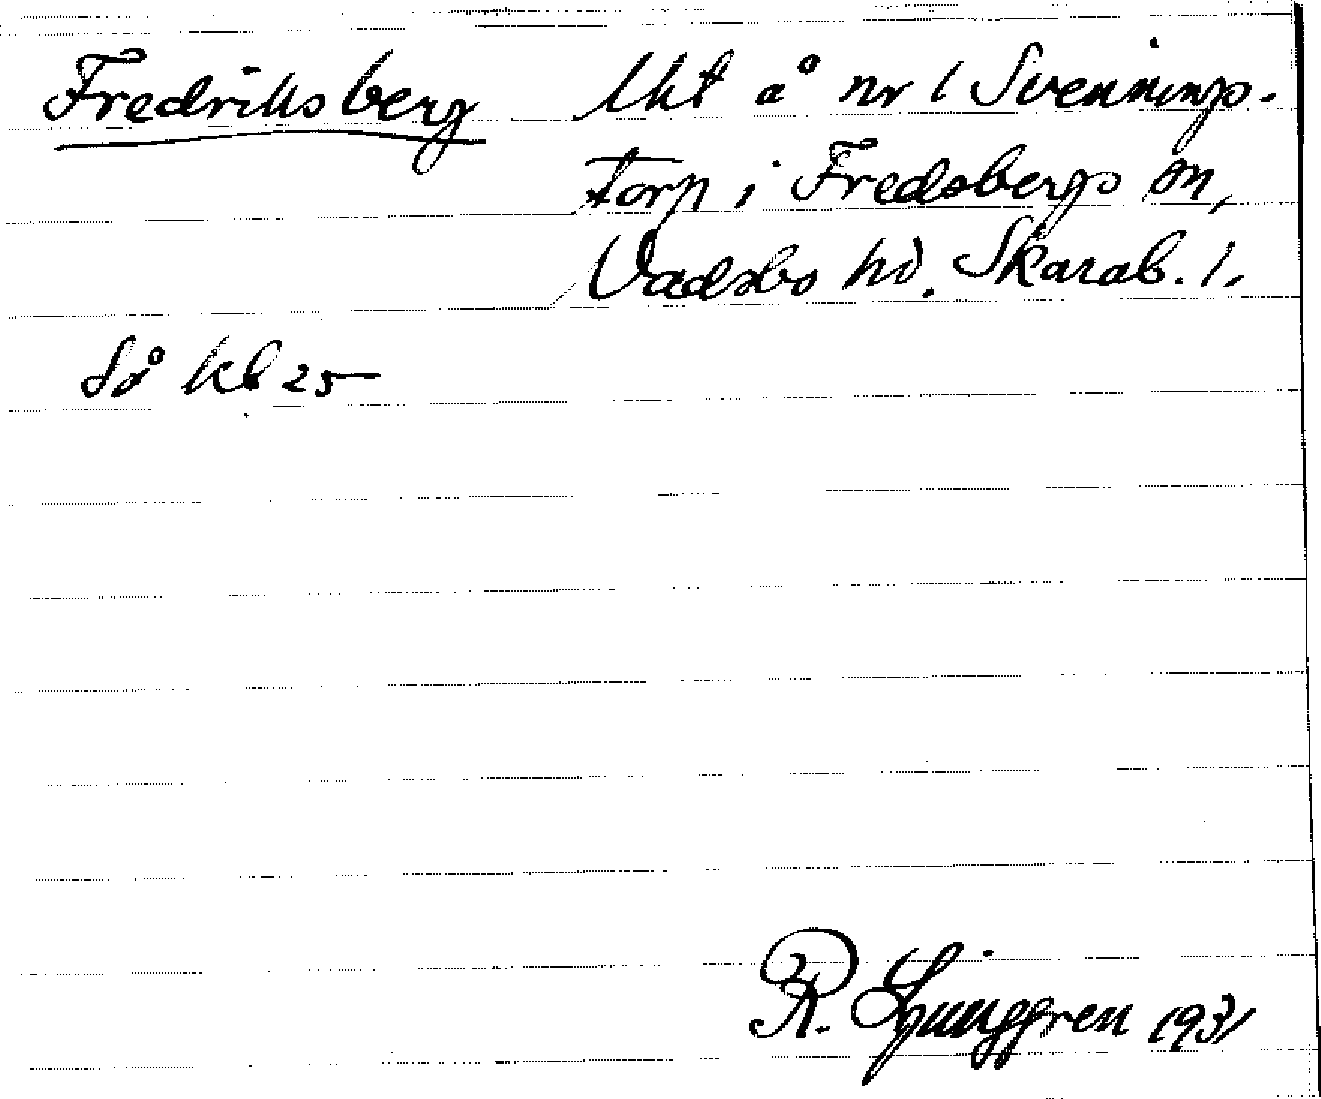 Fredriksberg lht å nr 1 Svennings-
torp i Fredsbergs sn,
Vadsbo hd. Skarab. l.
Så kb 25
R. Ljunggren 1931